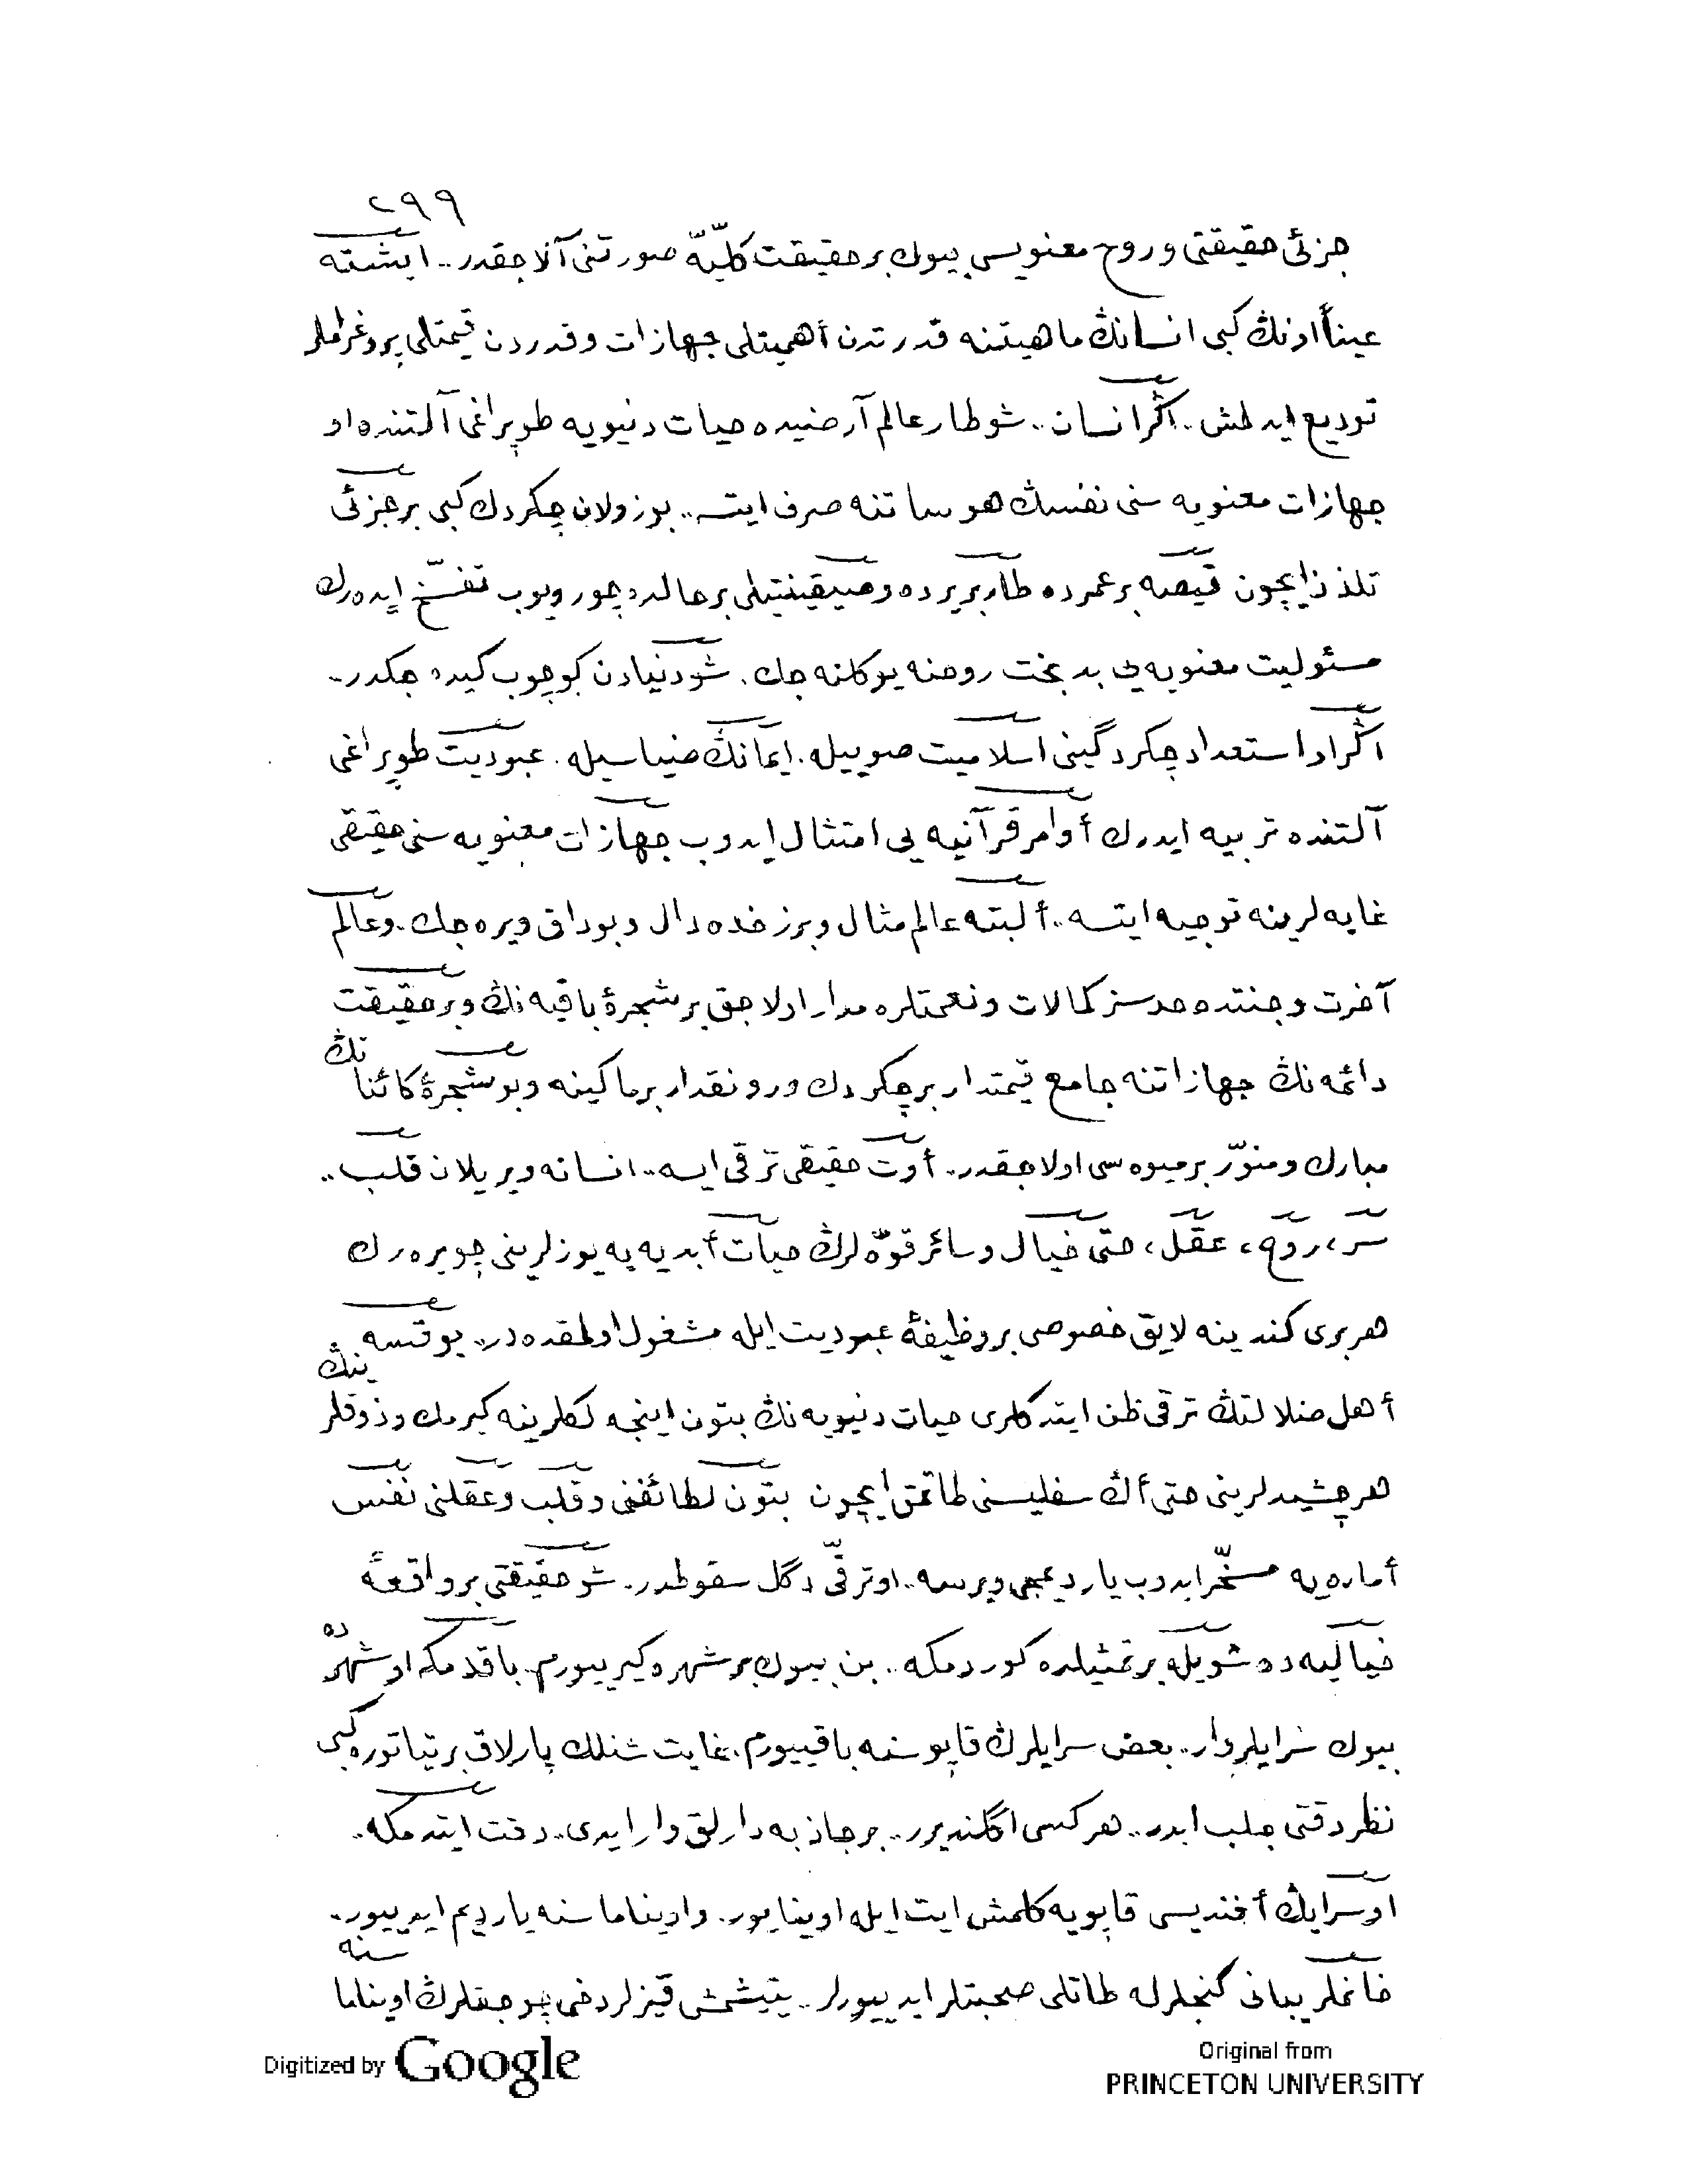 ٢٩٩
جزئی حقیقتی و روح معنویسی بیوك بر حقیقت كلیّه صورتنی آلاجقدر.. ایشته
عیناً اونڭ كبی انسانڭ ماهیتنه قدرتدن أهمیتلی جهازات و قدردن قیمتلی پروغراملر
تودیع ایدلمش.. اگر انسان.. شو طار عالم آرضیده حیات دنیویه طوپراغی آلتنده او
جهازات معنویه سنی نفسڭ هوساتنه صرف ایتسه.. بوزولان چكردك كبی بر جزئی
تلذذ ایچون قیصه بر عمرده طار بر یرده و صیقینتیلی بر حالده چورویوب تفسّخ ایده رك
مسئولیت معنویه یی بدبخت روحنه یوكلنه جك. شو دنیادن كوچوب كیده جكدر..
اگر او استعداد چكردگینی اسلامیت صوییله. ایمانڭ ضیاسیله. عبودیت طوپراغی
آلتنده تربیه ایدرك أوامر قرآنیه یی امتثال ایدوب جهازات معنویه سنی حقیقی
غایه لرینه توجیه ایتسه.. ألبته عالم مثال و برزخده دال و بوداق ویره جك. و عالم
آخرت و جنتده حدسز كمالات و نعمتلره مدار اولاجق بر شجرۀ باقیه نڭ و بر حقیقت
دائمه نڭ جهازاتنه جامع قیمتدار بر چكردك و رونقدار بر ماكینه و بو شجرۀ كائناتڭ
مبارك و منوّر بر میوه سی اولاجقدر.. أوت حقیقی ترقی ایسه.. انسانه ویریلان قلب..
سر، روح، عقل، حتی خیال و سائر قوّه لرڭ حیات أبدیه یه یوزلرینی چویره رك
هر بری كندینه لایق خصوصی بر وظیفۀ عبودیت ایله مشغول اولمقده در.. یوقسه
أهل ضلالتڭ ترقی ظن ایتدكلری حیات دنیویه نڭ بتون اینجه لكلرینه كیرمك و ذوقلرینڭ
هر چشیدلرینی حتی أڭ سفلیسنی طاتمق ایچون بتون لطائفنی و قلب و عقلنی نفس
أماره یه مسخّر ایدوب یاردیمجی ویرسه.. او ترقّی دگل سقوطدر. شو حقیقتی بر واقعۀ
خیالیه ده شویله بر تمثیلده كوردمكه.. بن بیوك بر شهره كیرییورم. باقدمكه او شهرده
بیوك سرایلر وار.. بعض سرایلرڭ قاپوسنه باقییورم. غایت شنلك پارلاق بر تیاتوره كبی
نظر دقتی جلب ایدر.. هر كسی اگلندیرر.. بر جاذبه دارلق وار ایدی.. دقت ایتدمكه.
او سرایڭ أفندیسی قاپویه كلمش ایت ایله اوینایور. و اویناماسنه یاردیم ایدییور.
خانملر یبانی كنجلرله طاتلی صحبتلر ایدییورلر.. یتیشمش قیزلر دخی چوجقلرڭ اویناماسنه
Digitized by Google
Original from
PRINCETON UNIVERSITY